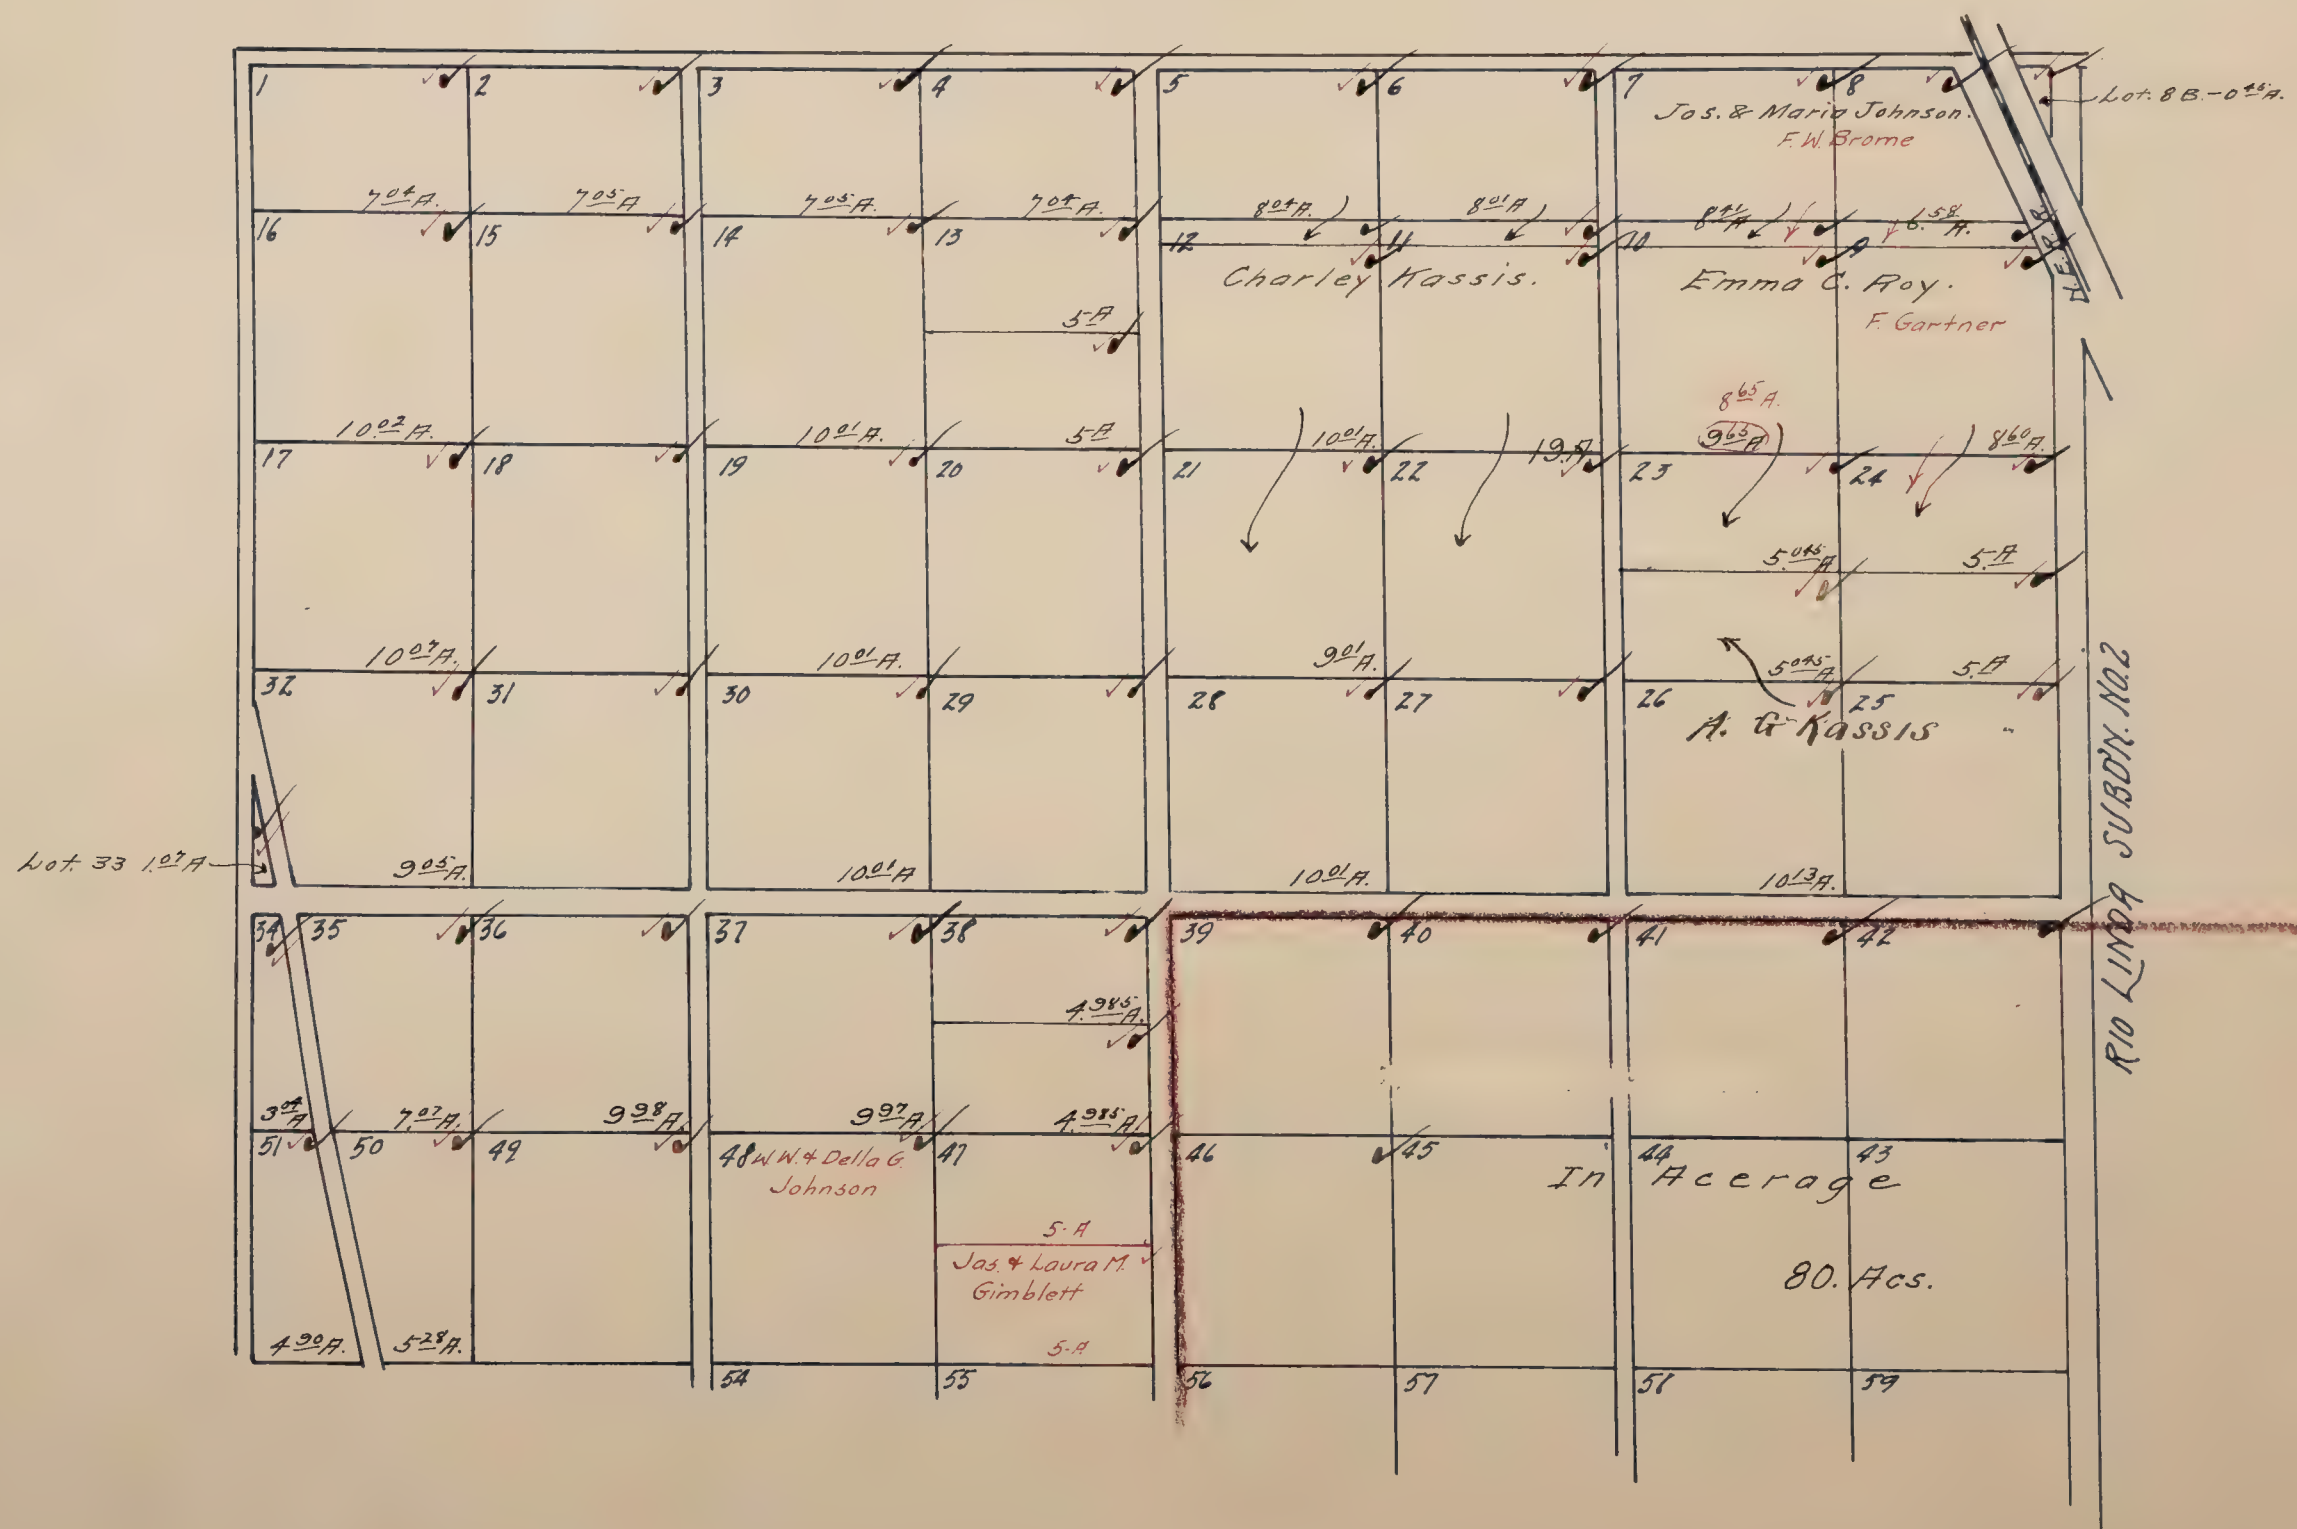 1
2
3
4
5
6
7
8
Lot. 8 B.-0 45 A.
Jos. & Maria Johnson.
F. W. Brome
7 04 A.
7 05 A
7 05 A.
7 04 A.
8 04 A.
8 01 A
8 41 A
6. 58 A.
16
15
14
13
12
11
10
9
Charley Kassis.
Emma C. Roy.
F. Gartner
5 A
8 65 A.
10 02 A.
10 01 A.
5 A
10 01 A.
19. A
9 65 A
8 60 A.
17
18
19
20
21
22
23
24
5. 045 A
5. A
10 07 A.
10 01 A.
9 01 A.
5 045 A
5. A
32
31
30
29
28
27
26
25
A. G Kassis
RIO LINDA SUBD'N. NO.2
Lot. 33 1. 07 A
9 05 A.
10 01 A
10 01 A.
10 13 A.
34
35
36
37
38
39
40
41
42
4. 985 A.
3 04 A
7. 07 A.
9 98 A.
9 97 A
4. 985 A.
51
50
49
48
47
46
45
44
43
W. W. & Della G.
Johnson
In Acerage
5- A
Jas. & Laura M.
Gimblett
80. Acs.
4 90 A.
5 28 A.
5- A
54
55
56
57
58
59